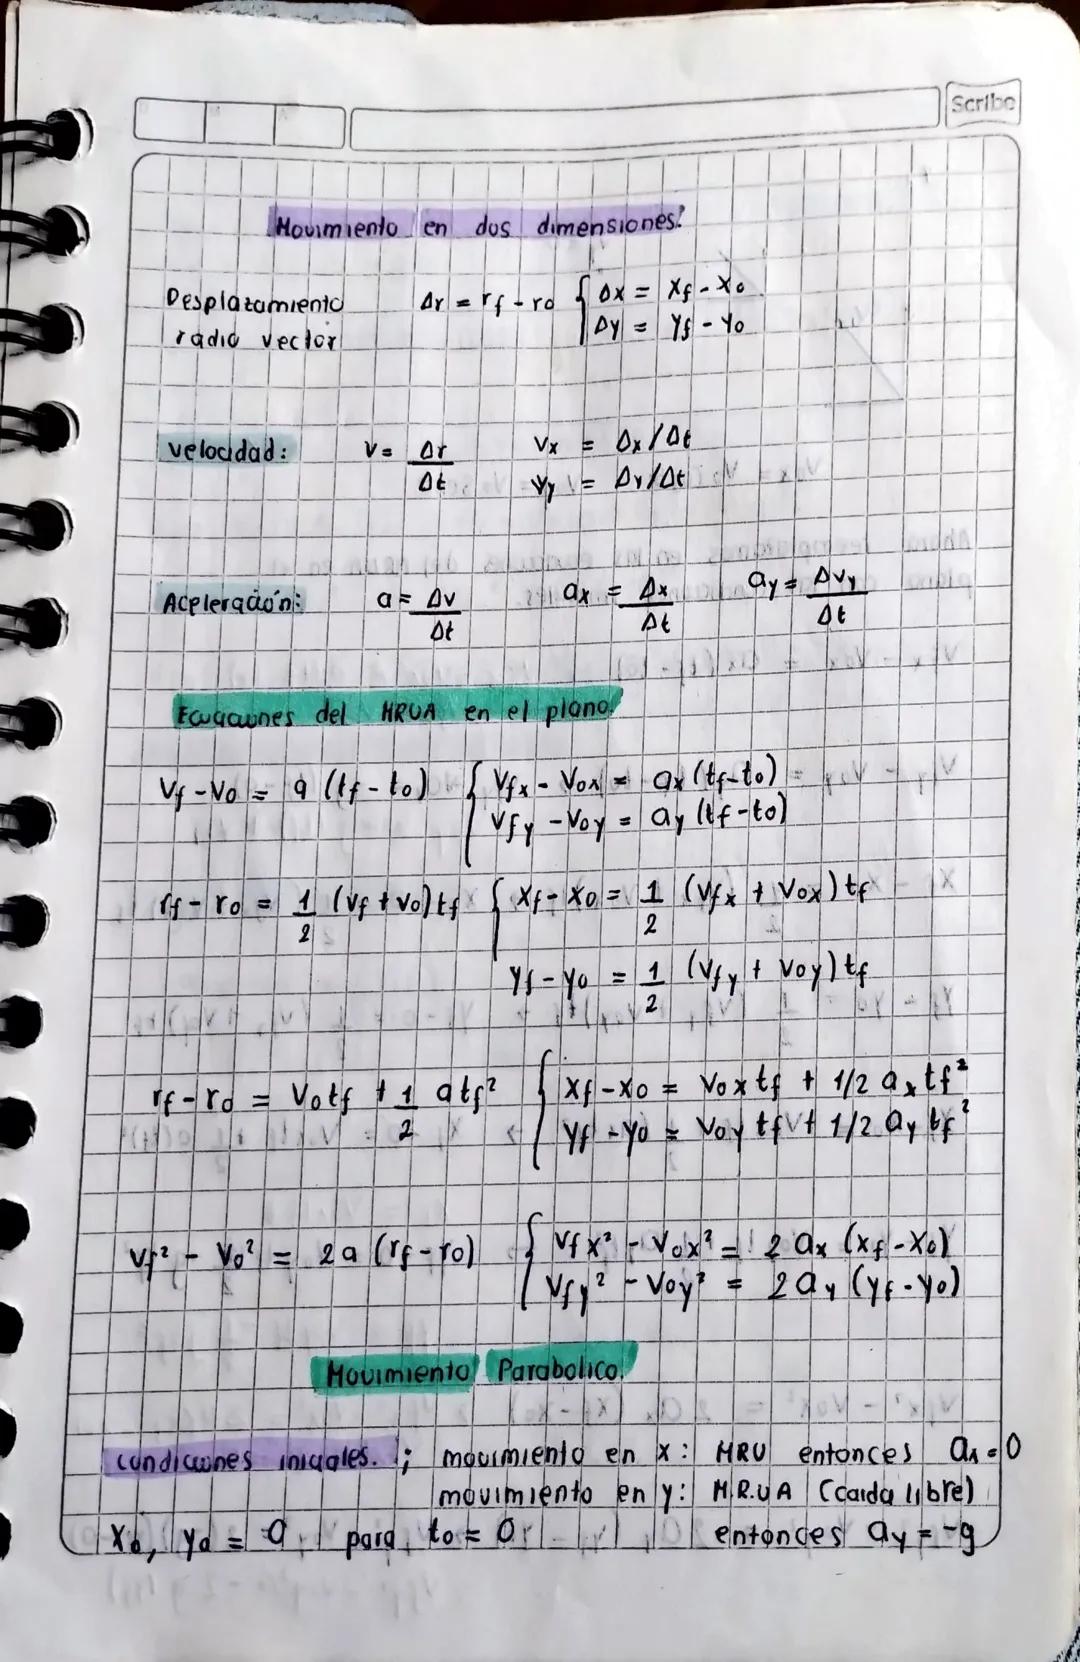 Scribe
Movimiento en dos dimensiones:
Desplazamiento Δr = rf - ro { Δx = xf - xo
radio vector Δy = yf - yo
velocidad: v = Δr/Δt Vx = Δx/Δt
Vy = Δy/Δt
Aceleración: a = Δv/Δt ax = Δx/Δt ay = Δvy/Δt
Ecuaciones del MRUA en el plano.
Vf - Vo = a (tf - to) { Vfx - Vox = ax (tf - to)
Vfy - Voy = ay (tf - to)
rf - ro = 1/2 (vf + vo) tf { xf - xo = 1/2 (Vfx + Vox) tf
yf - yo = 1/2 (Vfy + Voy) tf
rf - ro = Votf + 1/2 atf² { xf - xo = Vox tf + 1/2 ax tf²
yf - yo = Voy tf + 1/2 ay tf²
Vf² - Vo² = 2a (rf - ro) { Vfx² - Vox² = 2 ax (xf - xo)
Vfy² - Voy² = 2ay (yf - yo)
Movimiento Parabolico.
condiciones iniciales. ; movimiento en x: MRU entonces ax = 0
movimiento en y: M.R.U A (caida libre)
xo, yo = 0 para to = 0 entonces ay = -g